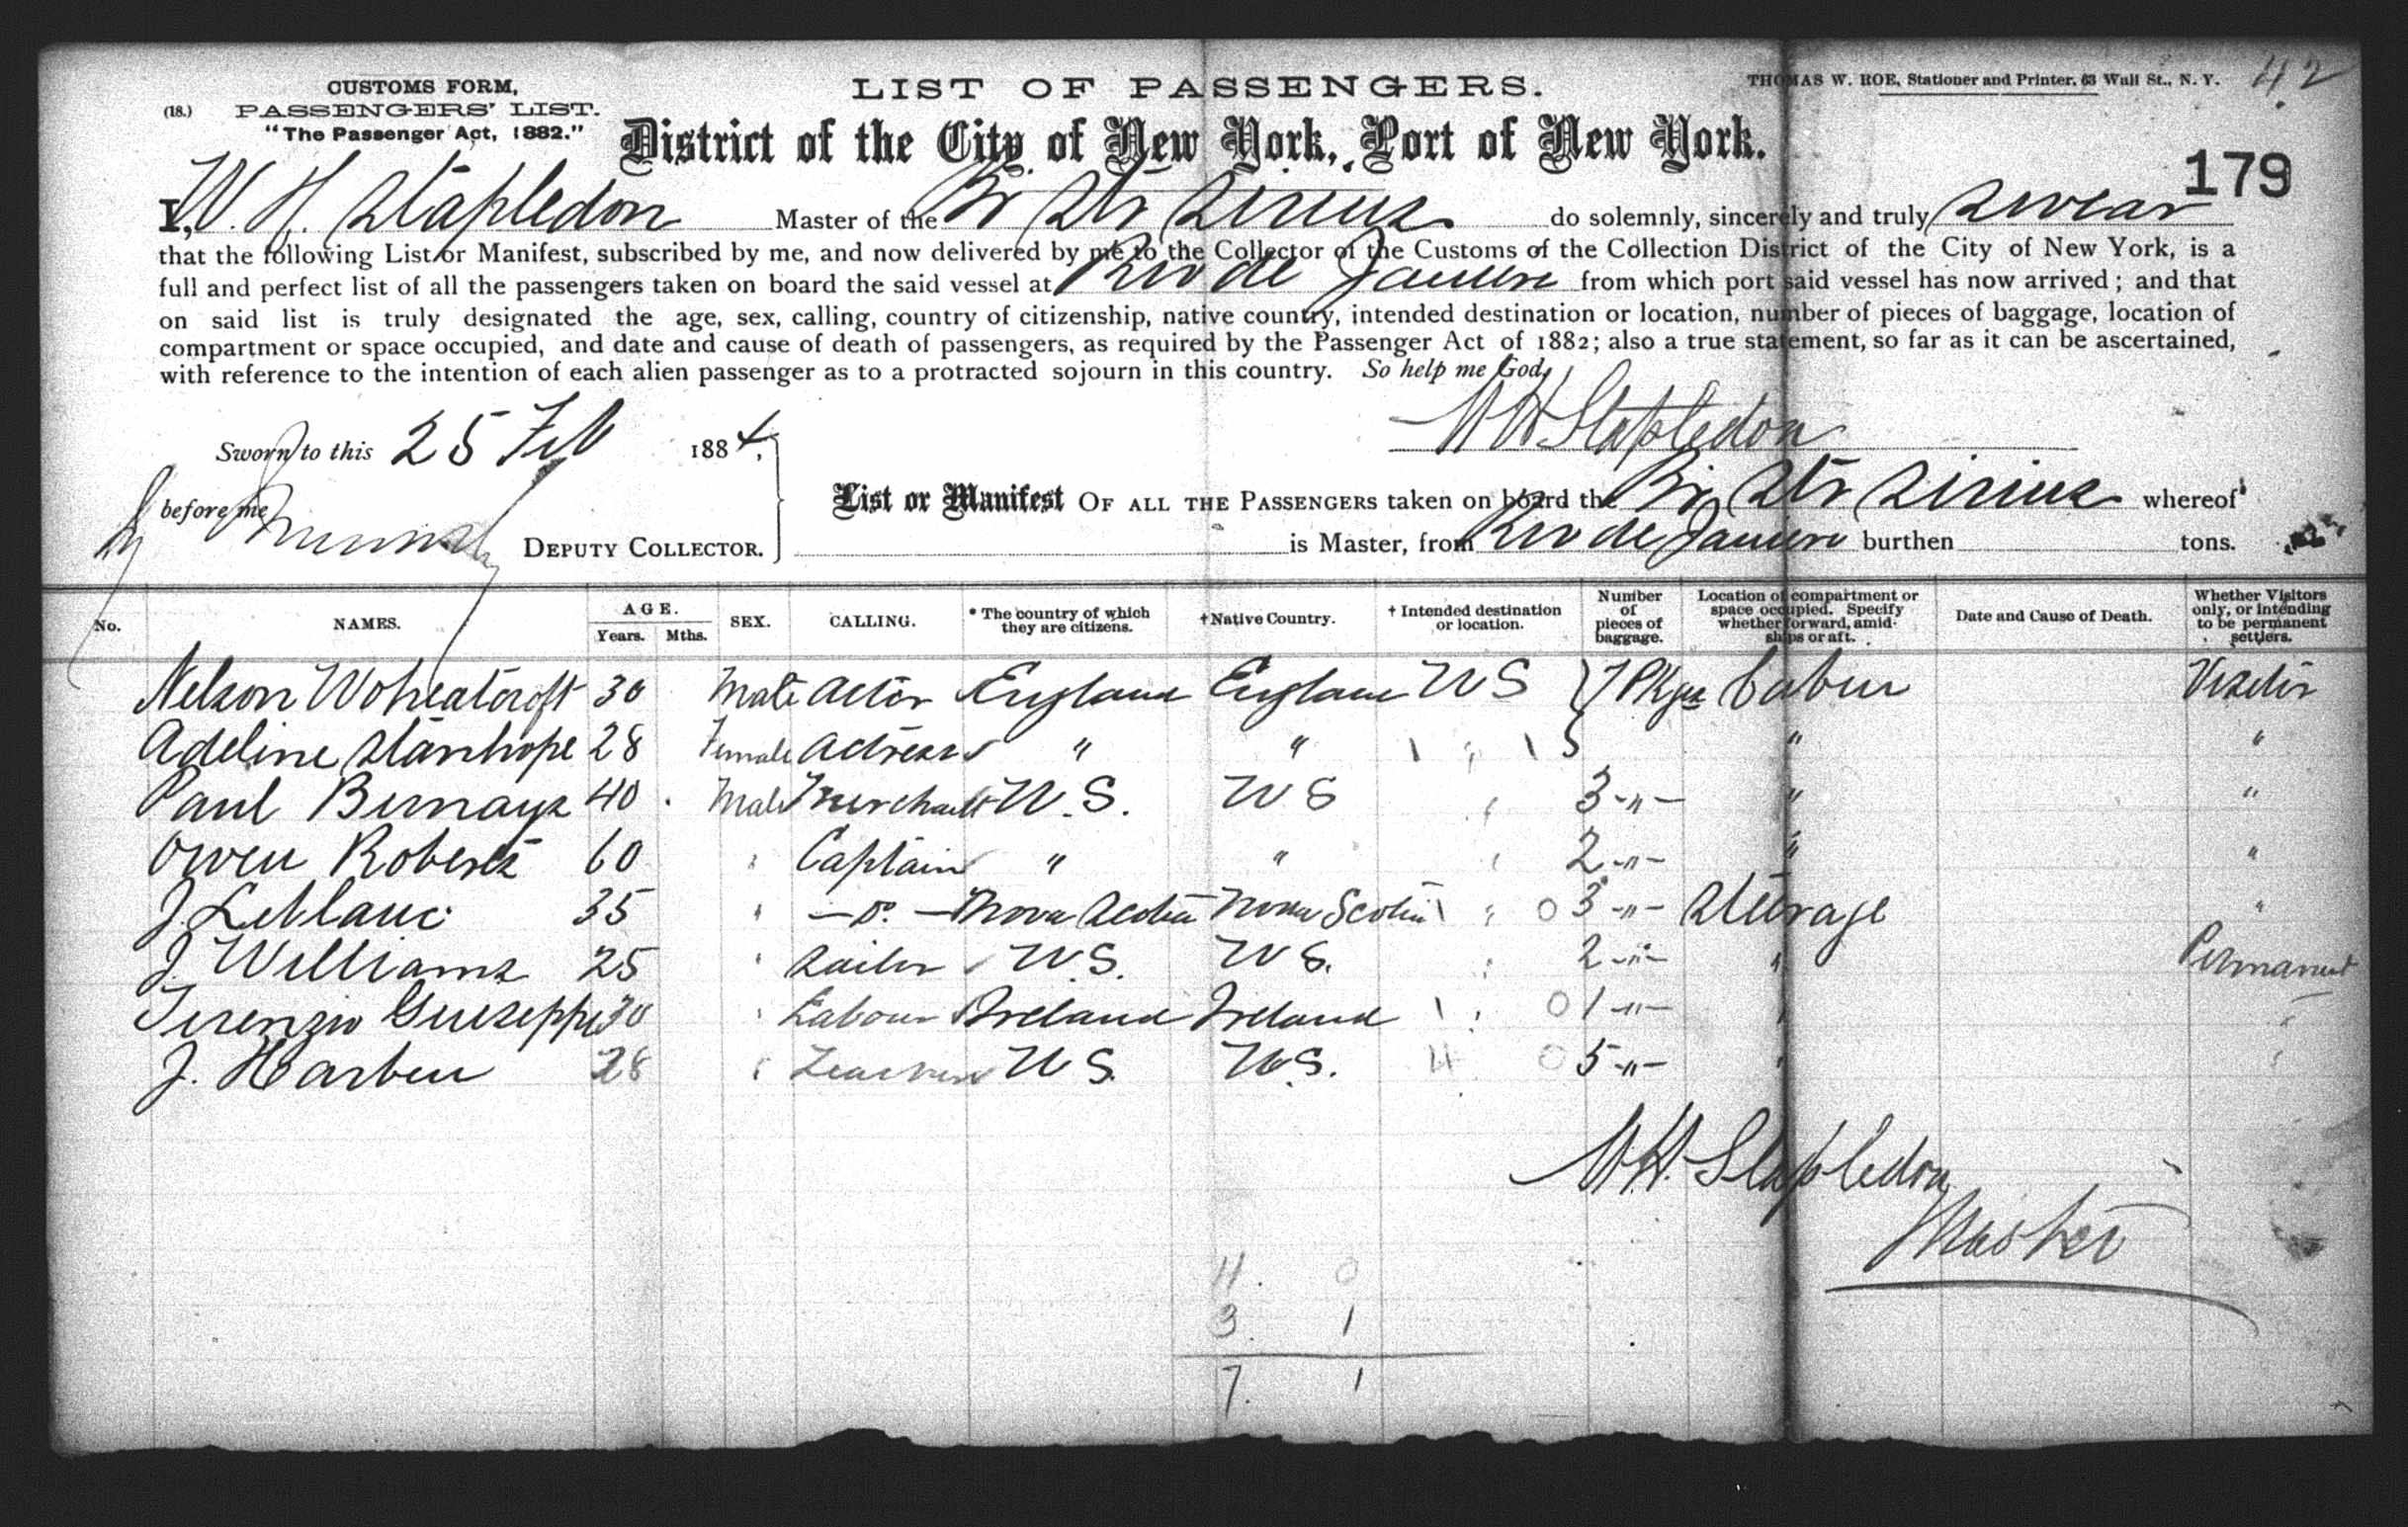 CUSTOMS FORM,
(18.) PASSENGERS' LIST.
"The Passenger Act, 1882."
LIST OF PASSENGERS.
THOMAS W. ROE, Stationer and Printer, 63 Wall St., N. Y.
42
District of the City of New York, Port of New York.
179
I, W. H. Stapledon Master of the Br Str Sirius do solemnly, sincerely and truly swear
that the following List or Manifest, subscribed by me, and now delivered by me to the Collector of the Customs of the Collection District of the City of New York, is a
full and perfect list of all the passengers taken on board the said vessel at Rio de Janeiro from which port said vessel has now arrived; and that
on said list is truly designated the age, sex, calling, country of citizenship, native country, intended destination or location, number of pieces of baggage, location of
compartment or space occupied, and date and cause of death of passengers, as required by the Passenger Act of 1882; also a true statement, so far as it can be ascertained,
with reference to the intention of each alien passenger as to a protracted sojourn in this country. So help me God,
W H Stapledon
Sworn to this 25 Feb 1884,
before me
DEPUTY COLLECTOR.
List or Manifest OF ALL THE PASSENGERS taken on board the Br Str Sirius whereof
is Master, from Rio de Janeiro burthen tons.
No. NAMES. AGE. Years. Mths. SEX. CALLING. * The country of which they are citizens. † Native Country. † Intended destination or location. Number of pieces of baggage. Location of compartment or space occupied. Specify whether forward, amidships or aft. Date and Cause of Death. Whether Visitors only, or intending to be permanent settlers.
Nelson Wheatcroft 30 Male Actor England England U S 7 Pkgs Cabin Visitor
Adeline Stanhope 28 Female Actress " " " " "
Paul Bernays 40 Male Merchant U.S. U S " 3 -"- " "
Owen Roberts 60 " Captain " " " 2 -"- " "
J. Leblanc 35 " -Do.- Nova Scotia Nova Scotia " 0 3 -"- Steerage "
J. Williams 25 " Sailor U.S. U S. " 2 -"- " Permanent
Terenzio Giuseppe 30 " Labour Ireland Ireland " 0 1 -"- " "
J. Harben 28 " U S. U.S. 4 0 5 -"- " "
W. H. Stapledon
Master
4. 0
3. 1
7. 1